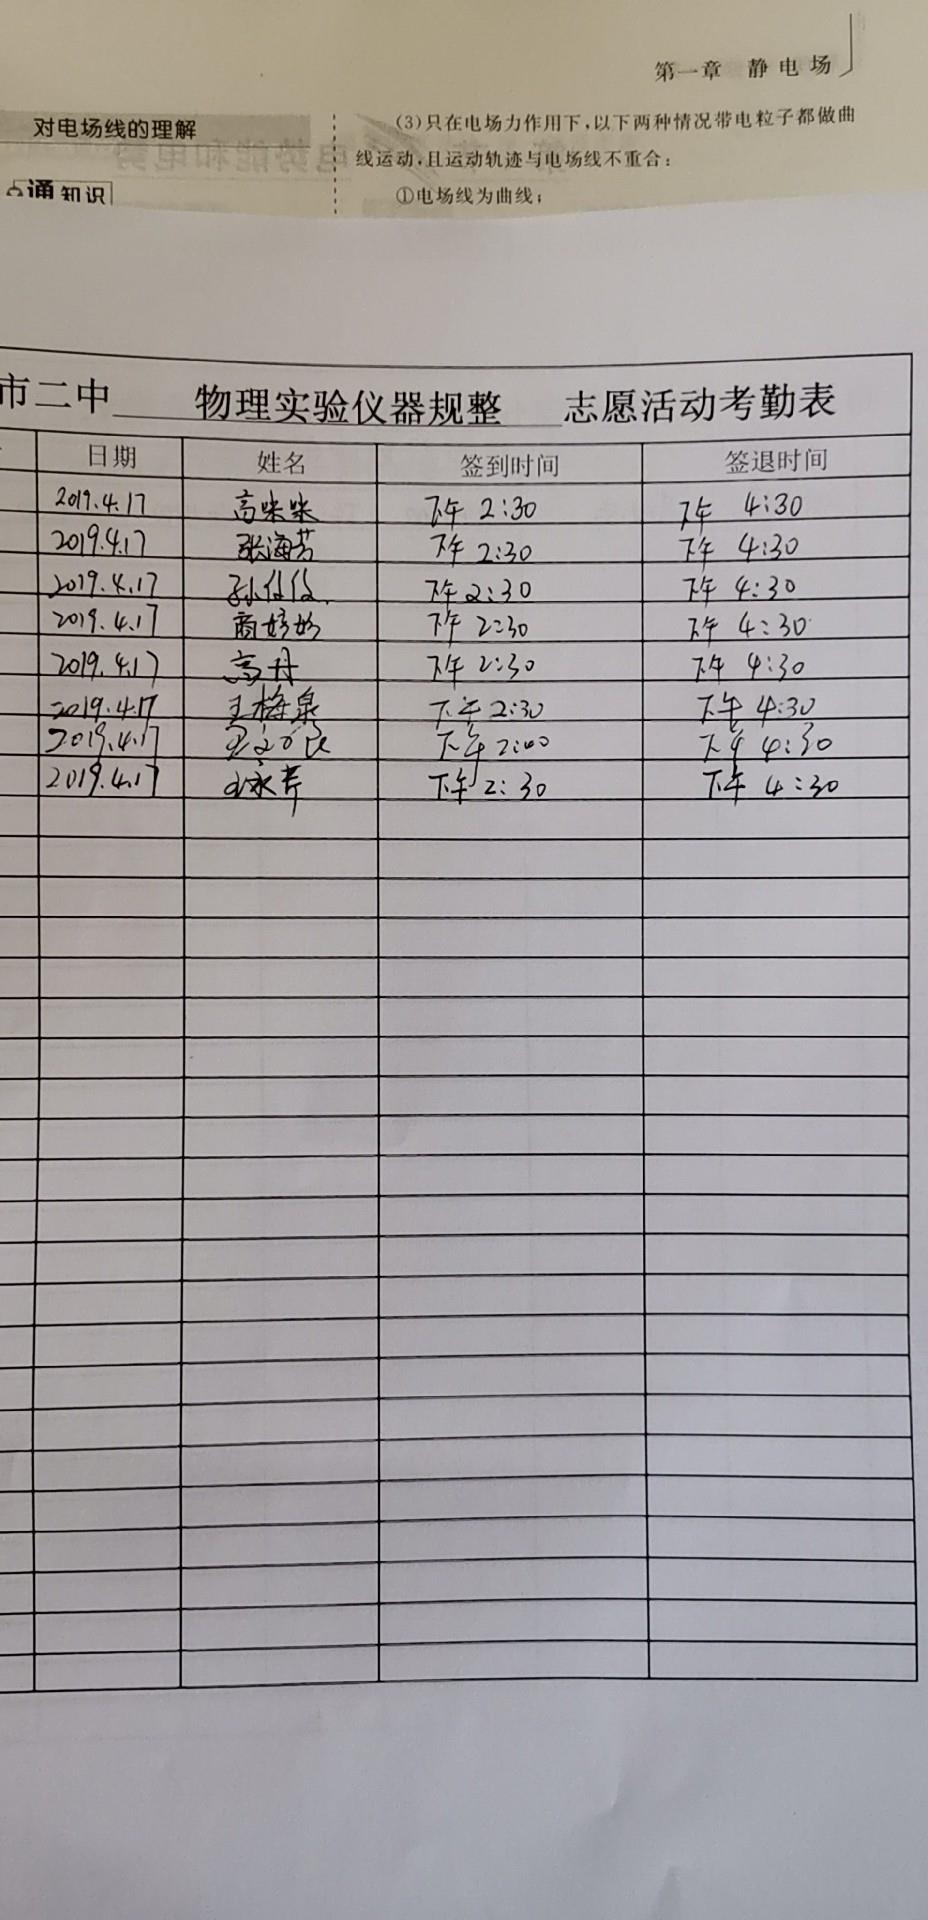 第一章 静电场
对电场线的理解
通知识
(3)只在电场力作用下,以下两种情况带电粒子都做曲
线运动,且运动轨迹与电场线不重合:
①电场线为曲线;
市二中 物理实验仪器规整 志愿活动考勤表
日期 姓名 签到时间 签退时间
2019.4.17 高咪咪 下午 2:30 下午 4:30
2019.4.17 张海芳 下午 2:30 下午 4:30
2019.4.17 下午 2:30 下午 4:30
2019.4.17 商婷婷 下午 2:30 下午 4:30
2019.4.17 高丹 下午 2:30 下午 4:30
2019.4.17 王梅泉 下午 2:30 下午 4:30
2019.4.17 下午 2:00 下午 4:30
2019.4.17 下午 2:30 下午 4:30